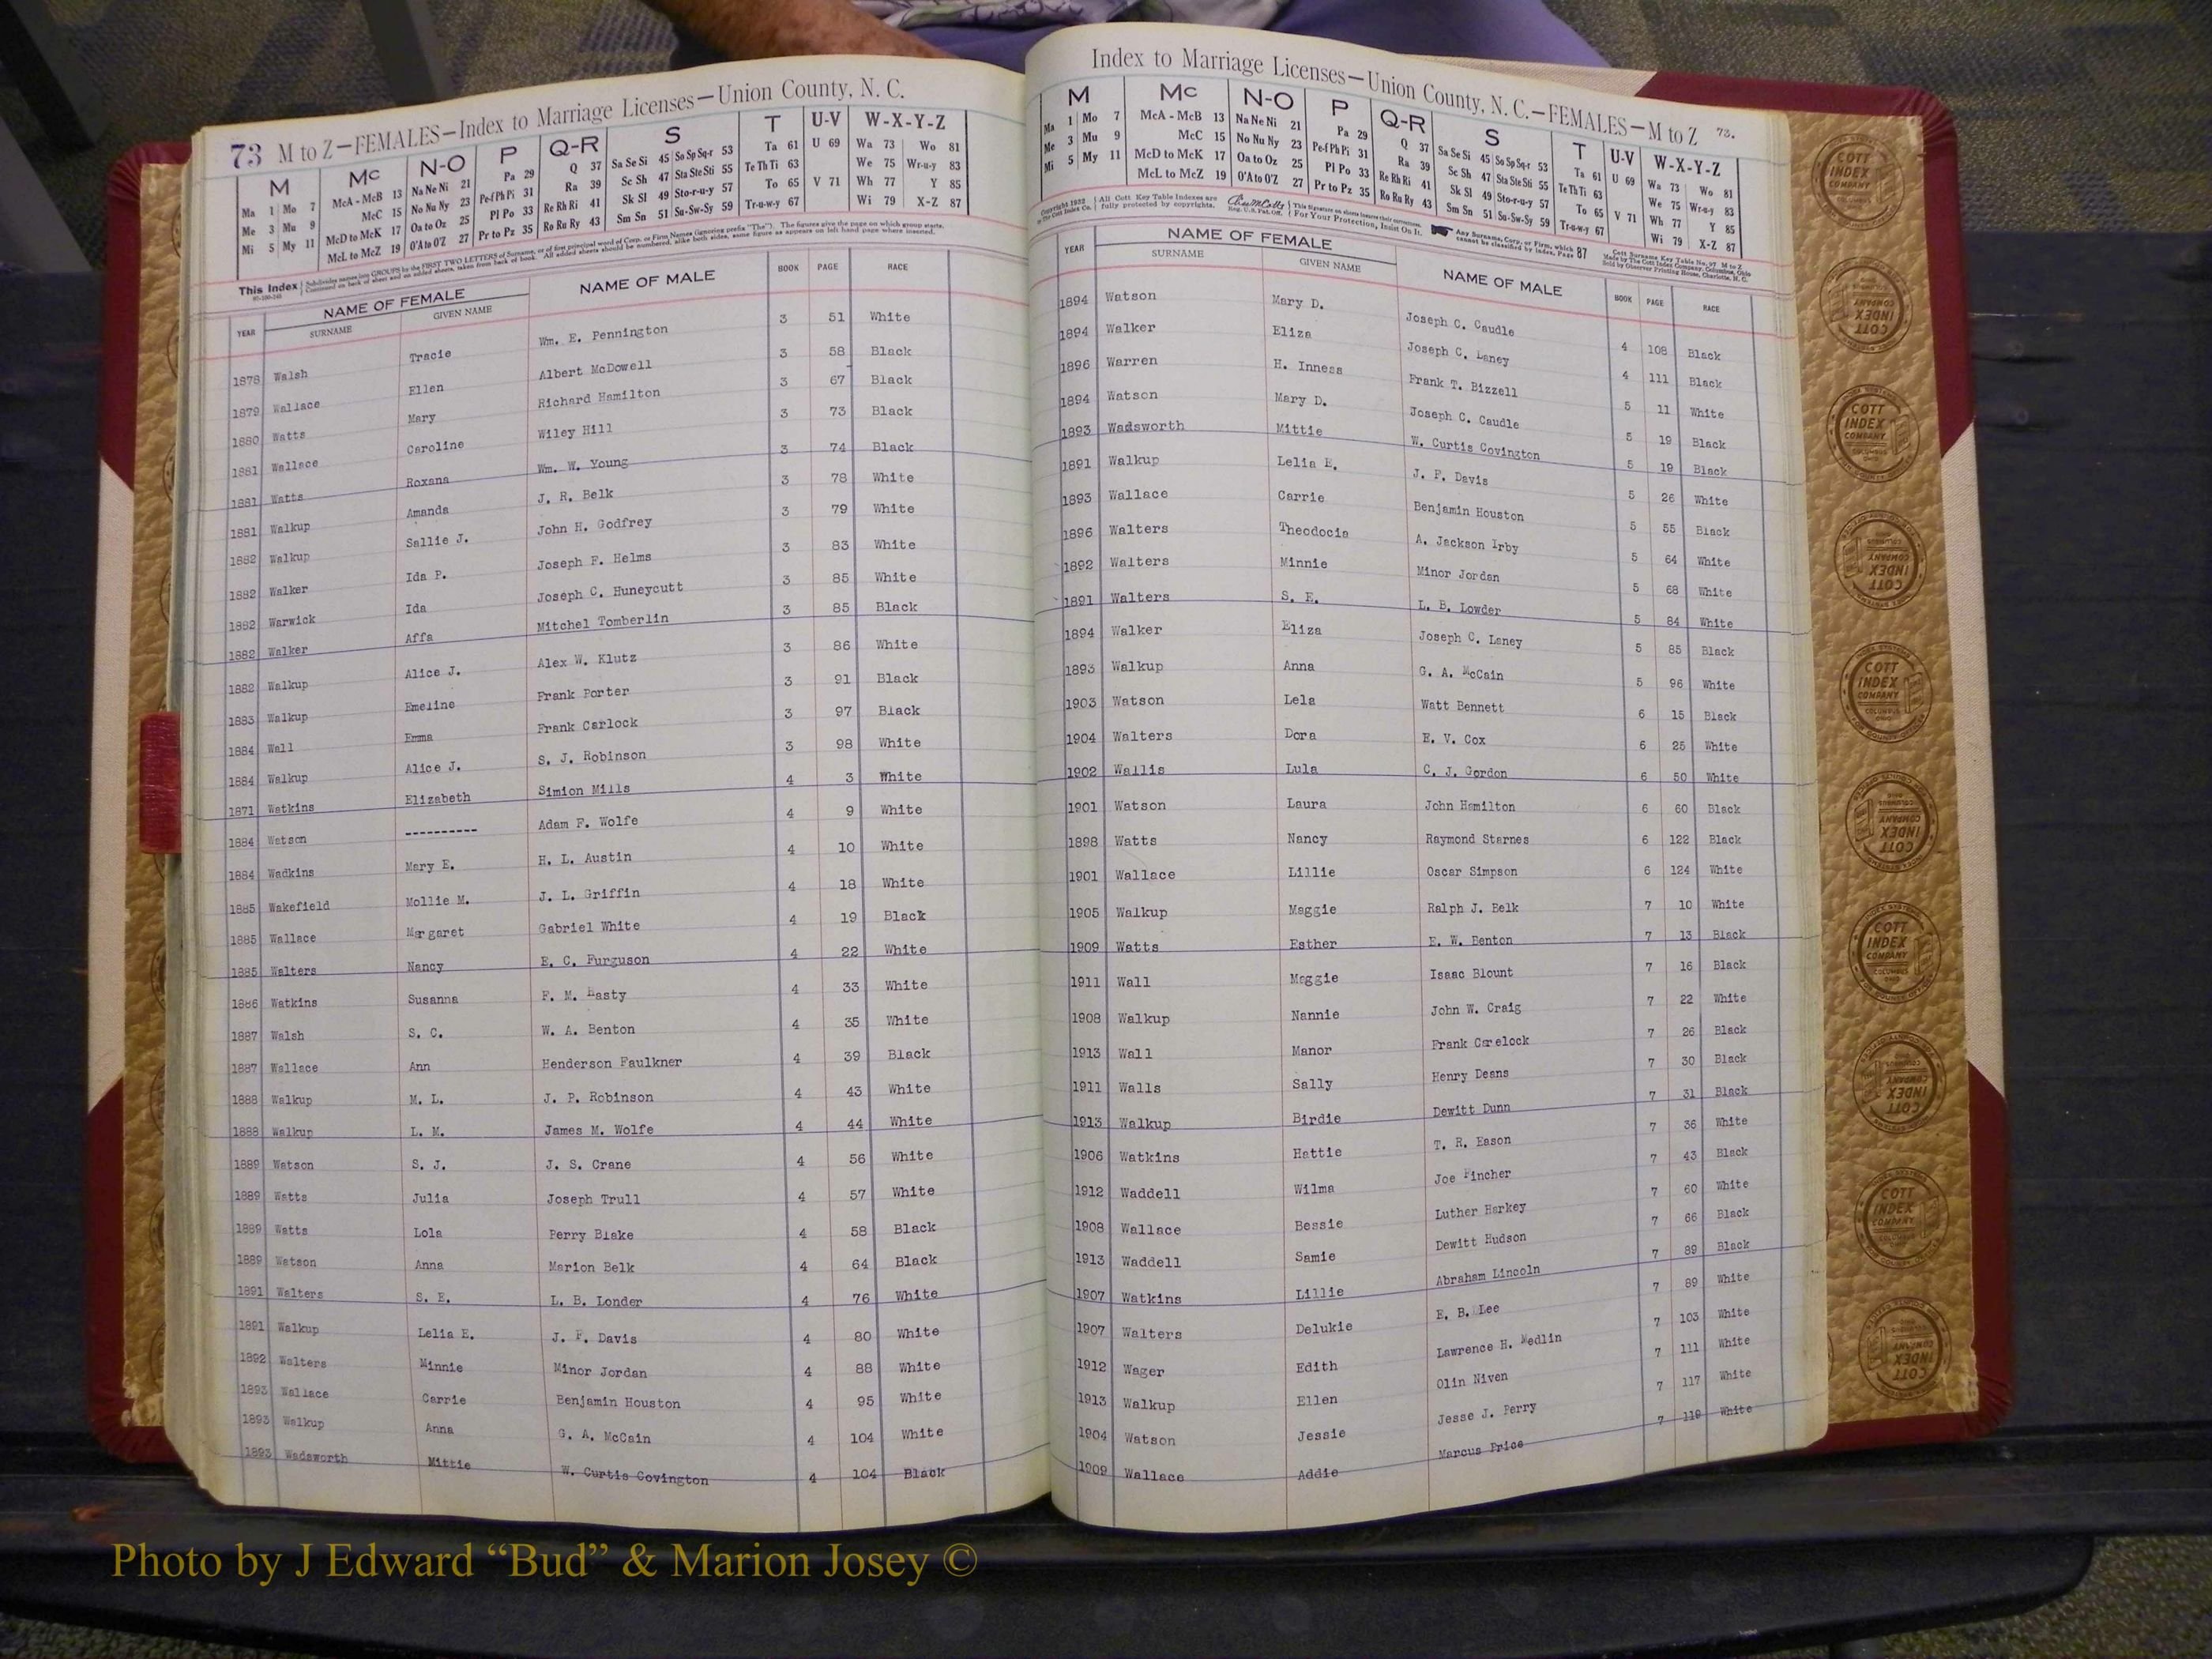 73 M to Z—FEMALES—Index to Marriage Licenses—Union County, N. C.
M Mc N-O P Q-R S T U-V W-X-Y-Z
Ma 1 Mo 7 McA - McB 13 Na Ne Ni 21 Pa 29 Q 37 Sa Se Si 45 So Sp Sq-r 53 Ta 61 U 69 Wa 73 Wo 81
Me 3 Mu 9 McC 15 No Nu Ny 23 Pe-f Ph Pi 31 Ra 39 Sc Sh 47 Sta Ste Sti 55 Te Th Ti 63 We 75 Wr-u-y 83
Mi 5 My 11 McD to McK 17 Oa to Oz 25 Pl Po 33 Re Rh Ri 41 Sk Sl 49 Sto-r-u-y 57 To 65 V 71 Wh 77 Y 85
McL to McZ 19 O'A to O'Z 27 Pr to Pz 35 Ro Ru Ry 43 Sm Sn 51 Su-Sw-Sy 59 Tr-u-w-y 67 Wi 79 X-Z 87
This Index
YEAR NAME OF FEMALE NAME OF MALE BOOK PAGE RACE
SURNAME GIVEN NAME
1878 Walsh Tracie Wm. E. Pennington 3 51 White
1879 Wallace Ellen Albert McDowell 3 58 Black
1880 Watts Mary Richard Hamilton 3 67 Black
1881 Wallace Caroline Wiley Hill 3 73 Black
1881 Watts Roxana Wm. W. Young 3 74 Black
1881 Walkup Amanda J. R. Belk 3 78 White
1882 Walkup Sallie J. John H. Godfrey 3 79 White
1882 Walker Ida P. Joseph F. Helms 3 83 White
1882 Warwick Ida Joseph C. Huneycutt 3 85 White
1882 Walker Affa Mitchel Tomberlin 3 85 Black
1882 Walkup Alice J. Alex W. Klutz 3 86 White
1883 Walkup Emeline Frank Porter 3 91 Black
1884 Wall Emma Frank Carlock 3 97 Black
1884 Walkup Alice J. S. J. Robinson 3 98 White
1871 Watkins Elizabeth Simion Mills 4 3 White
1884 Watson ---------- Adam F. Wolfe 4 9 White
1884 Wadkins Mary E. H. L. Austin 4 10 White
1885 Wakefield Mollie M. J. L. Griffin 4 18 White
1885 Wallace Margaret Gabriel White 4 19 Black
1885 Walters Nancy E. C. Furguson 4 22 White
1886 Watkins Susanna F. M. Hasty 4 33 White
1887 Walsh S. C. W. A. Benton 4 35 White
1887 Wallace Ann Henderson Faulkner 4 39 Black
1888 Walkup M. L. J. P. Robinson 4 43 White
1888 Walkup L. M. James M. Wolfe 4 44 White
1889 Watson S. J. J. S. Crane 4 56 White
1889 Watts Julia Joseph Trull 4 57 White
1889 Watts Lola Perry Blake 4 58 Black
1889 Watson Anna Marion Belk 4 64 Black
1891 Walters S. E. L. B. Londer 4 76 White
1891 Walkup Lelia E. J. F. Davis 4 80 White
1892 Walters Minnie Minor Jordan 4 88 White
1893 Wallace Carrie Benjamin Houston 4 95 White
1893 Walkup Anna G. A. McCain 4 104 White
1893 Wadsworth Mittie W. Curtis Covington 4 104 Black
Index to Marriage Licenses—Union County, N. C.—FEMALES—M to Z 73.
M Mc N-O P Q-R S T U-V W-X-Y-Z
Ma 1 Mo 7 McA - McB 13 Na Ne Ni 21 Pa 29 Q 37 Sa Se Si 45 So Sp Sq-r 53 Ta 61 U 69 Wa 73 Wo 81
Me 3 Mu 9 McC 15 No Nu Ny 23 Pe-f Ph Pi 31 Ra 39 Sc Sh 47 Sta Ste Sti 55 Te Th Ti 63 We 75 Wr-u-y 83
Mi 5 My 11 McD to McK 17 Oa to Oz 25 Pl Po 33 Re Rh Ri 41 Sk Sl 49 Sto-r-u-y 57 To 65 V 71 Wh 77 Y 85
McL to McZ 19 O'A to O'Z 27 Pr to Pz 35 Ro Ru Ry 43 Sm Sn 51 Su-Sw-Sy 59 Tr-u-w-y 67 Wi 79 X-Z 87
Copyright 1932 All Cott Key Table Indexes are
fully protected by copyrights. For Your Protection, Insist On It. cannot be classified by index, Page 87
YEAR NAME OF FEMALE NAME OF MALE BOOK PAGE RACE
SURNAME GIVEN NAME
1894 Watson Mary D. Joseph C. Caudle 4 108 Black
1894 Walker Eliza Joseph C. Laney 4 111 Black
1896 Warren H. Inness Frank T. Bizzell 5 11 White
1894 Watson Mary D. Joseph C. Caudle 5 19 Black
1893 Wadsworth Mittie W. Curtis Covington 5 19 Black
1891 Walkup Lelia E. J. F. Davis 5 26 White
1893 Wallace Carrie Benjamin Houston 5 55 Black
1896 Walters Theodocia A. Jackson Irby 5 64 White
1892 Walters Minnie Minor Jordan 5 68 White
1891 Walters S. E. L. B. Lowder 5 84 White
1894 Walker Eliza Joseph C. Laney 5 85 Black
1893 Walkup Anna G. A. McCain 5 96 White
1903 Watson Lela Watt Bennett 6 15 Black
1904 Walters Dora E. V. Cox 6 25 White
1902 Wallis Lula C. J. Gordon 6 50 White
1901 Watson Laura John Hamilton 6 60 Black
1898 Watts Nancy Raymond Starnes 6 122 Black
1901 Wallace Lillie Oscar Simpson 6 124 White
1905 Walkup Maggie Ralph J. Belk 7 10 White
1909 Watts Esther E. W. Benton 7 13 Black
1911 Wall Maggie Isaac Blount 7 16 Black
1908 Walkup Nannie John W. Craig 7 22 White
1913 Wall Manor Frank Carelock 7 26 Black
1911 Walls Sally Henry Deans 7 30 Black
1913 Walkup Birdie Dewitt Dunn 7 31 Black
1906 Watkins Hattie T. R. Eason 7 36 White
1912 Waddell Wilma Joe Fincher 7 43 Black
1908 Wallace Bessie Luther Harkey 7 60 White
1913 Waddell Samie Dewitt Hudson 7 66 Black
1907 Watkins Lillie Abraham Lincoln 7 89 Black
1907 Walters Delukie E. B. Lee 7 89 White
1912 Wager Edith Lawrence H. Medlin 7 103 White
1913 Walkup Ellen Olin Niven 7 111 White
1904 Watson Jessie Jesse J. Perry 7 117 White
1909 Wallace Addie Marcus Price 7 119 White
COTT
INDEX
COMPANY
Photo by J Edward “Bud” & Marion Josey ©